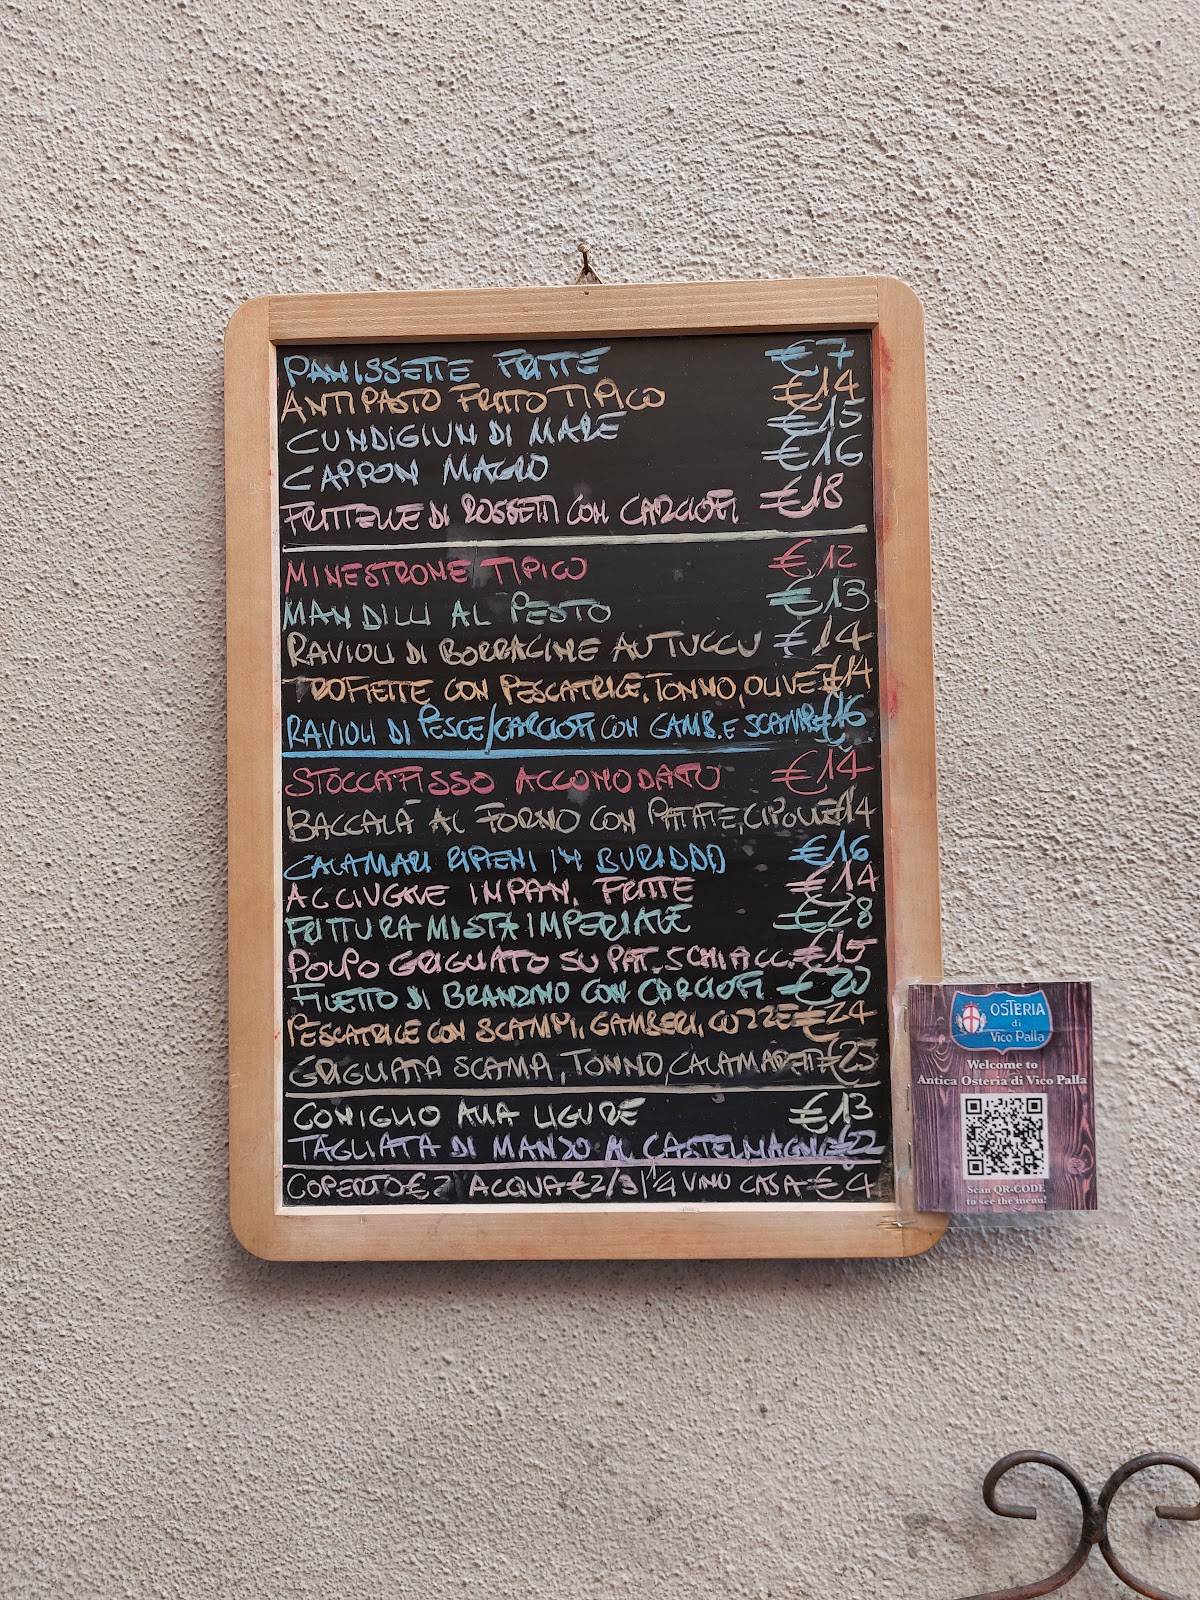 PANISSETTE FRITTE €7
ANTIPASTO FRITTO TIPICO €14
CUNDIGIUN DI MARE €15
CAPPON MAGRO €16
FRITTELLE DI ROSSETTI CON CARCIOFI €18
MINESTRONE TIPICO €12
MANDILLI AL PESTO €13
RAVIOLI DI BORRAGINE AU TUCCU €14
TROFIETTE CON PESCATRICE, TONNO, OLIVE €14
RAVIOLI DI PESCE/CARCIOFI CON GAMB. E SCAMPI €16
STOCCAFISSO ACCOMODATO €14
BACCALÀ AL FORNO CON PATATE, CIPOLLE €14
CALAMARI RIPIENI IN BURIDDA €16
ACCIUGHE IMPAN. FRITTE €14
FRITTURA MISTA IMPERIALE €28
POLPO GRIGLIATO SU PAT. SCHIACC. €15
FILETTO DI BRANZINO CON CARCIOFI €20
PESCATRICE CON SCAMPI, GAMBERI, COZZE €24
GRIGLIATA SCAMPI, TONNO, CALAMARETTI €25
CONIGLIO ALLA LIGURE €13
TAGLIATA DI MANZO AL CASTELMAGNO €22
COPERTO €2 ACQUA €2/3 1/4 VINO CASA €4
OSTERIA
di
Vico Palla
Welcome to
Antica Osteria di Vico Palla
Scan QR-CODE
to see the menu!